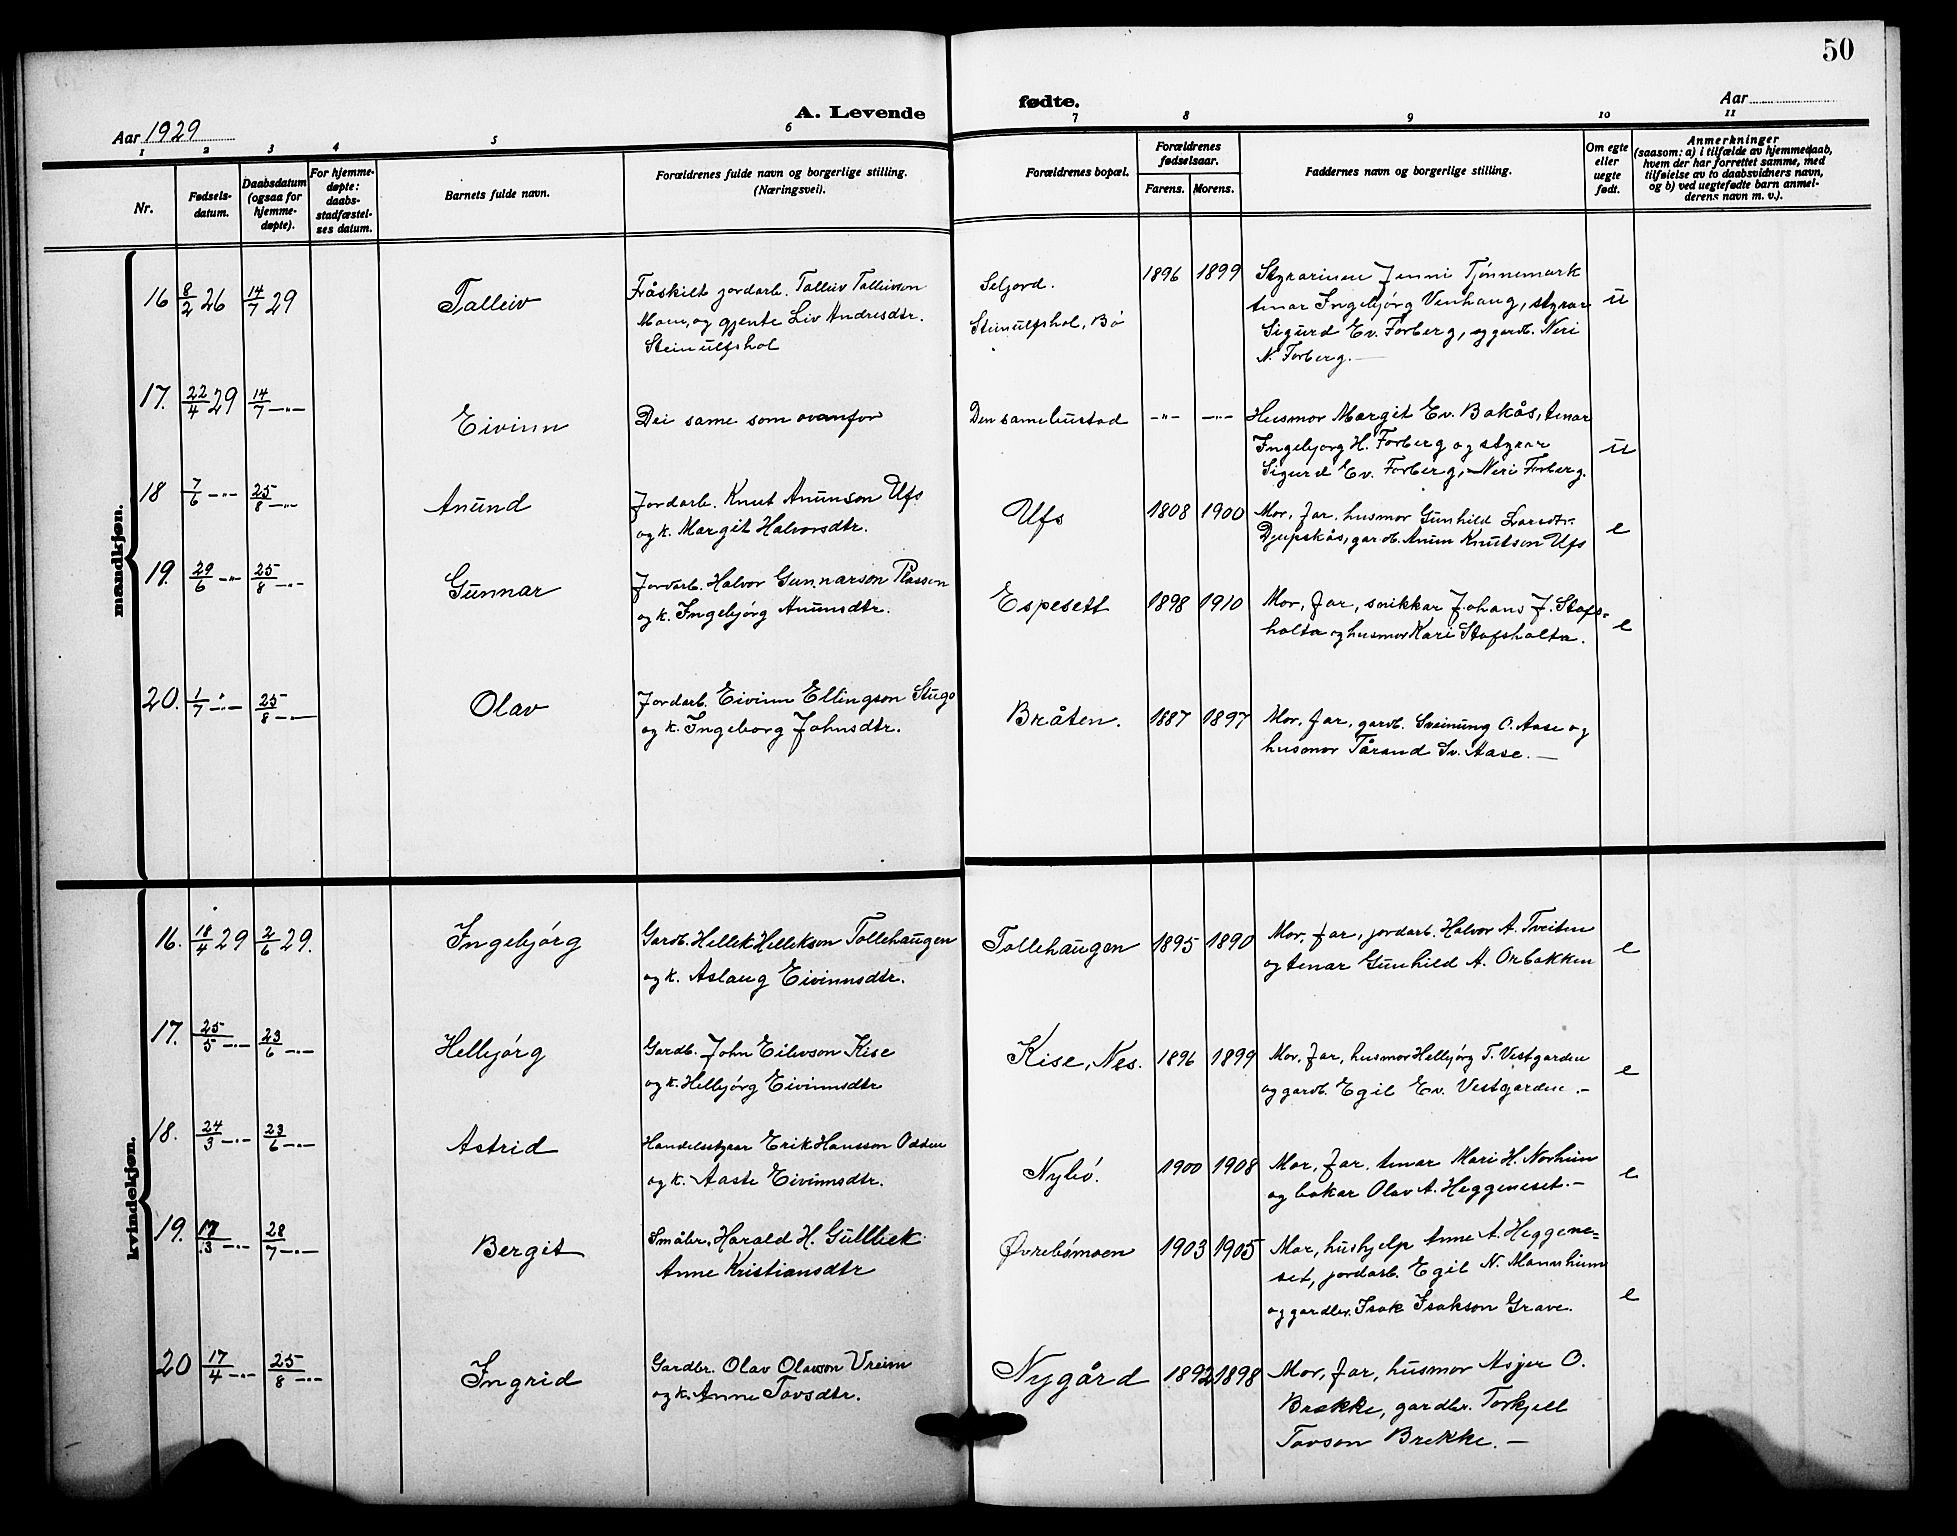 50
Aar 1929
A. Levende
fødte.
Aar
1 2 3 4 5 6 7 8 9 10 11
Nr.
Fødsels-
datum.
Daabsdatum
(ogsaa for
hjemme-
døpte).
For hjemme-
døpte:
daabs-
stadfæstel-
ses datum.
Barnets fulde navn.
Forældrenes fulde navn og borgerlige stilling.
(Næringsvei).
Forældrenes bopæl.
Forældrenes
fødselsaar.
Farens. Morens.
Faddernes navn og borgerlige stilling.
Om egte
eller
uegte
født.
Anmerkninger
(saasom: a) i tilfælde av hjemmedaab,
hvem der har forrettet samme, med
tilføielse av to daabsvidners navn,
og b) ved uegtefødte barn anmel-
derens navn m. v.).
mandkjøn.
16 8/2 26 14/7 29 Talleiv
Fråskilt jordarb. Talleiv Talleivson
Moen, og gjente Liv Andresdtr.
Steinulfshol
Seljord.
Steinulfshol, Bø
1896 1899
Styrarinne Jenni Tjønnemark
tenar Ingebjørg Venhaug, styrar
Sigurd Ev. Forberg, og gardb. Neri
N. Forberg.—
u
17. 22/4 29 14/7 —"— Eivinn
Dei same som ovanfor
Den same bustad —"— —"—
Husmor Margit Ev. Bakås, tenar
Ingebjorg H. Forberg og styrar
Sigurd Ev. Forberg, Neri Forberg.
u
18 7/6 —"— 25/8 —"— Anund
Jordarb. Knut Anunson Ufs
og k. Margit Halvorsdtr.
Ufs 1808 1900
Mor, far, husmor Gunhild Larsdtr.
Djupskås, gardb. Anun Knutson Ufs
e
19. 29/6 —"— 25/8 —"— Gunnar
Jordarb. Halvor Gunnarson Plassen
og k. Ingebjørg Anunsdtr.
Espesett 1898 1910
Mor, far, snikkar Johans J. Stafs-
holta og husmor Kari Stafsholta.
e
20. 1/7 —"— 25/8 —"— Olav
Jordarb. Eivinn Ellingson Stugo
og k. Ingeborg Johnsdtr.
Bråten. 1887 1897
Mor, far, gardb. Sveinung O. Aase og
husmor Tårand Sv. Aase.—
kvindekjøn.
16. 18/4 29 2/6 29. Ingebjørg
Gardb. Hellek Hellekson Tollehaugen
og k. Aslaug Eivinnsdtr.
Tollehaugen 1895 1890
Mor, far, jordarb. Halvor A. Tveiten
og tenar Gunhild A. Orbakken
e
17. 25/5 —"— 23/6 —"— Helbjørg
Gardb. John Eilevson Kise
og k. Helbjørg Eivinnsdtr
Kise, Nes. 1896 1899
Mor, far, husmor Helbjørg T. Vestgarden
og gardb. Egil Ev. Vestgarden.—
e
18. 24/3 —"— 23/6 —"— Astrid
Handelsstyrar Erik Hansson Odden
og k. Aaste Eivinnsdtr.
Nybø. 1900 1908
Mor, far, tenar Mari H. Norheim
og bakar Olav A. Heggeneset.—
e
19. 17/3 —"— 28/7 —"— Bergit
Småbr. Harald H. Gullbek
Anne Kristiansdtr
Øvrebømoen 1903 1905
Mor, hushjelp Anne A. Heggene=
set, jordarb. Egil N. Mannheim
og gardbr. Isak Isakson Grave.
e
20 17/4 —"— 25/8 —"— Ingrid
Gardbr. Olav Olavson Vreim
og k. Anne Tovsdtr.
Nygård 1892 1898
Mor, far, husmor Asjer O.
Brekke, gardbr. Torkjell
Tovson Brekke.—